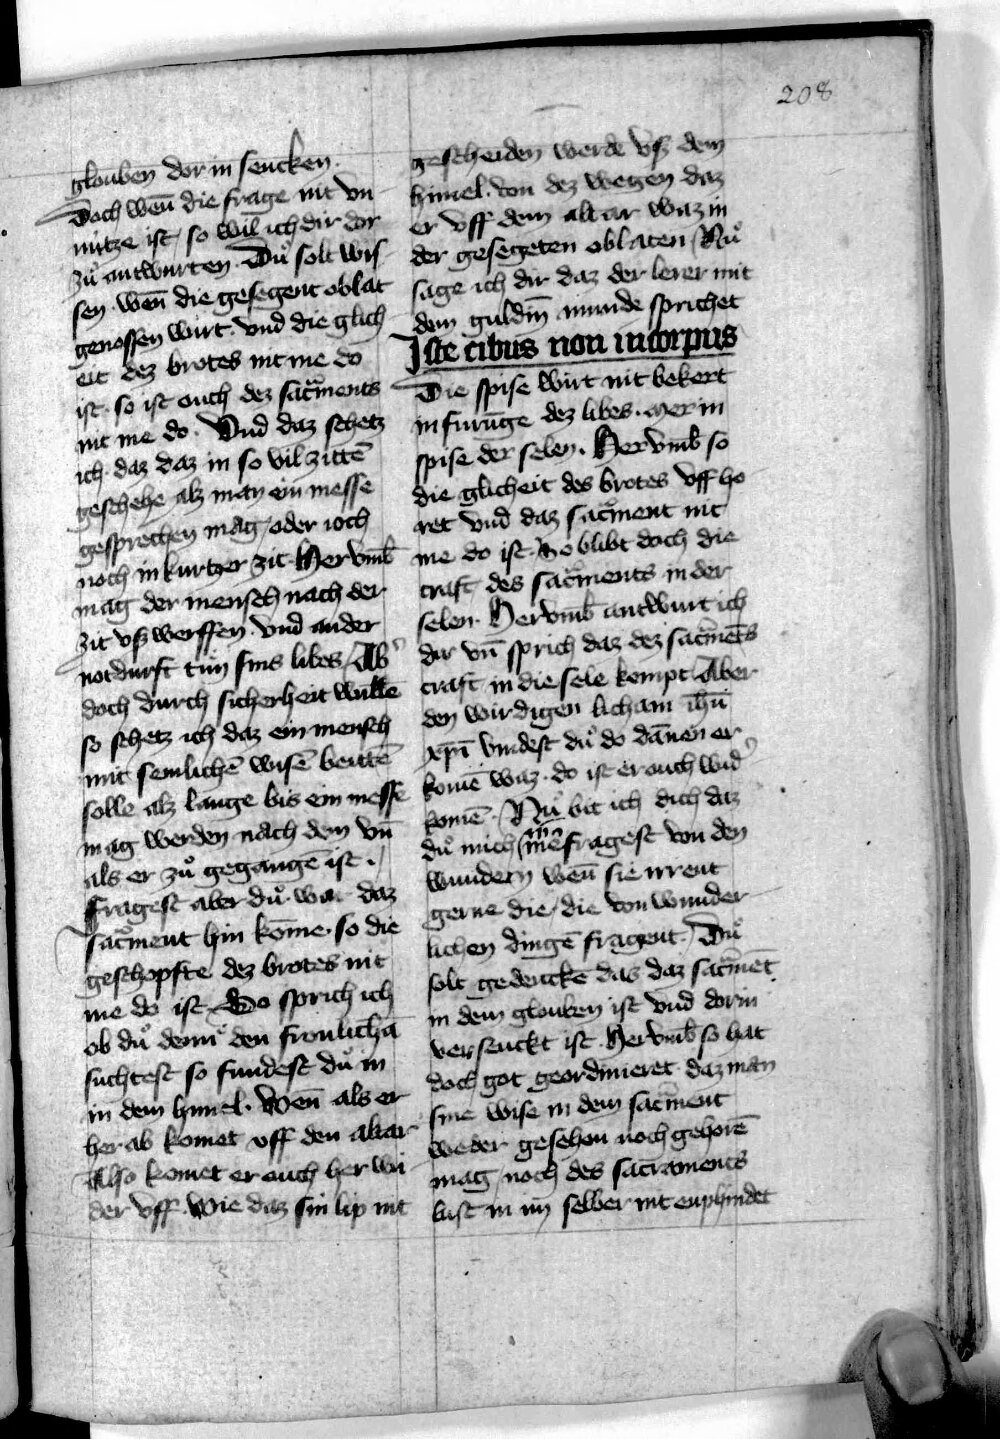 208
glouben dor in sencken.
Doch wen̄ die frage nit vn
nútze ist / so wil ich dir dor
zuͦ antwurten. Duͦ solt wis-
sen. wen̄ die gesegent oblat
genossen wirt. vnd die glich
eit dez brotes nit me do
ist. so ist ouch dez sacͣments
nit me do. Vnd daz schetz
ich. daz daz in so vil zittē
geschehe alz man ein messe
gesprechen mag / oder ioch
noch in kurtzer zit. Hervmb̄
mag der mensch nach der
zit vsz werffen. vnd ander
notdurft tun sins libes / Ab᾽
doch durch sicherheit willē
so schetz ich daz ein mensch
mit semlichē wisē beittē
solle alz lange bis ein messe
mag werden nach dem vn̄
als er zuͦ gegangē ist. /
Fragest aber duͦ. war daz
sacͣment hin kōme. so die
geschopfte dez brotes nit
me do ist. So sprich ich
ob duͦ denn den fronlichā
suchtest so fundest duͦ in
in dem himel. Wen̄ als er
her ab komet vff den altar
Also komet er ouch her wi
der vff. Wie daz sin lip nit
gescheiden werde vsz dem
himel. von dez wegen daz
er vff dem altar waz in
der gesegeten oblaten / Nuͦ
sage ich dir daz der lerer mit
dem guldin̄ munde sprichet
Iste cibus non in corpus
Die spise wirt nit bekert
in furūge dez libes. mer in
spise der selen. Hervmb̄ so
die glicheit des brotes vff ho
ret vnd daz sacͣment nit
me do ist. So blibt doch die
craft des sacͣments in der
selen. Hervmb̄ antwurt ich
dir vn̄ sprich daz dez sacͣmēts
craft in die sele kompt / Aber
den wirdigen licham ih̄u
xp̄i vindest duͦ do dānen er
komē waz. do ist er ouch wid᾽
komē. Nuͦ bit ich dich daz
duͦ mich nit me fragest von den
wundern wen̄ sie irrent
gerne die / die von wunder
lichen dingē fragent. / Duͦ
solt gedenckē das daz sacͣmēt
in dem glouben ist vnd dorin
versenckt ist. Hervmb̄ so hat
doch got geordinieret daz man
sine wise in dem sacͣment
weder gesehen noch gehorē
mag / noch des sacraments
lust in im selber nit enphindet